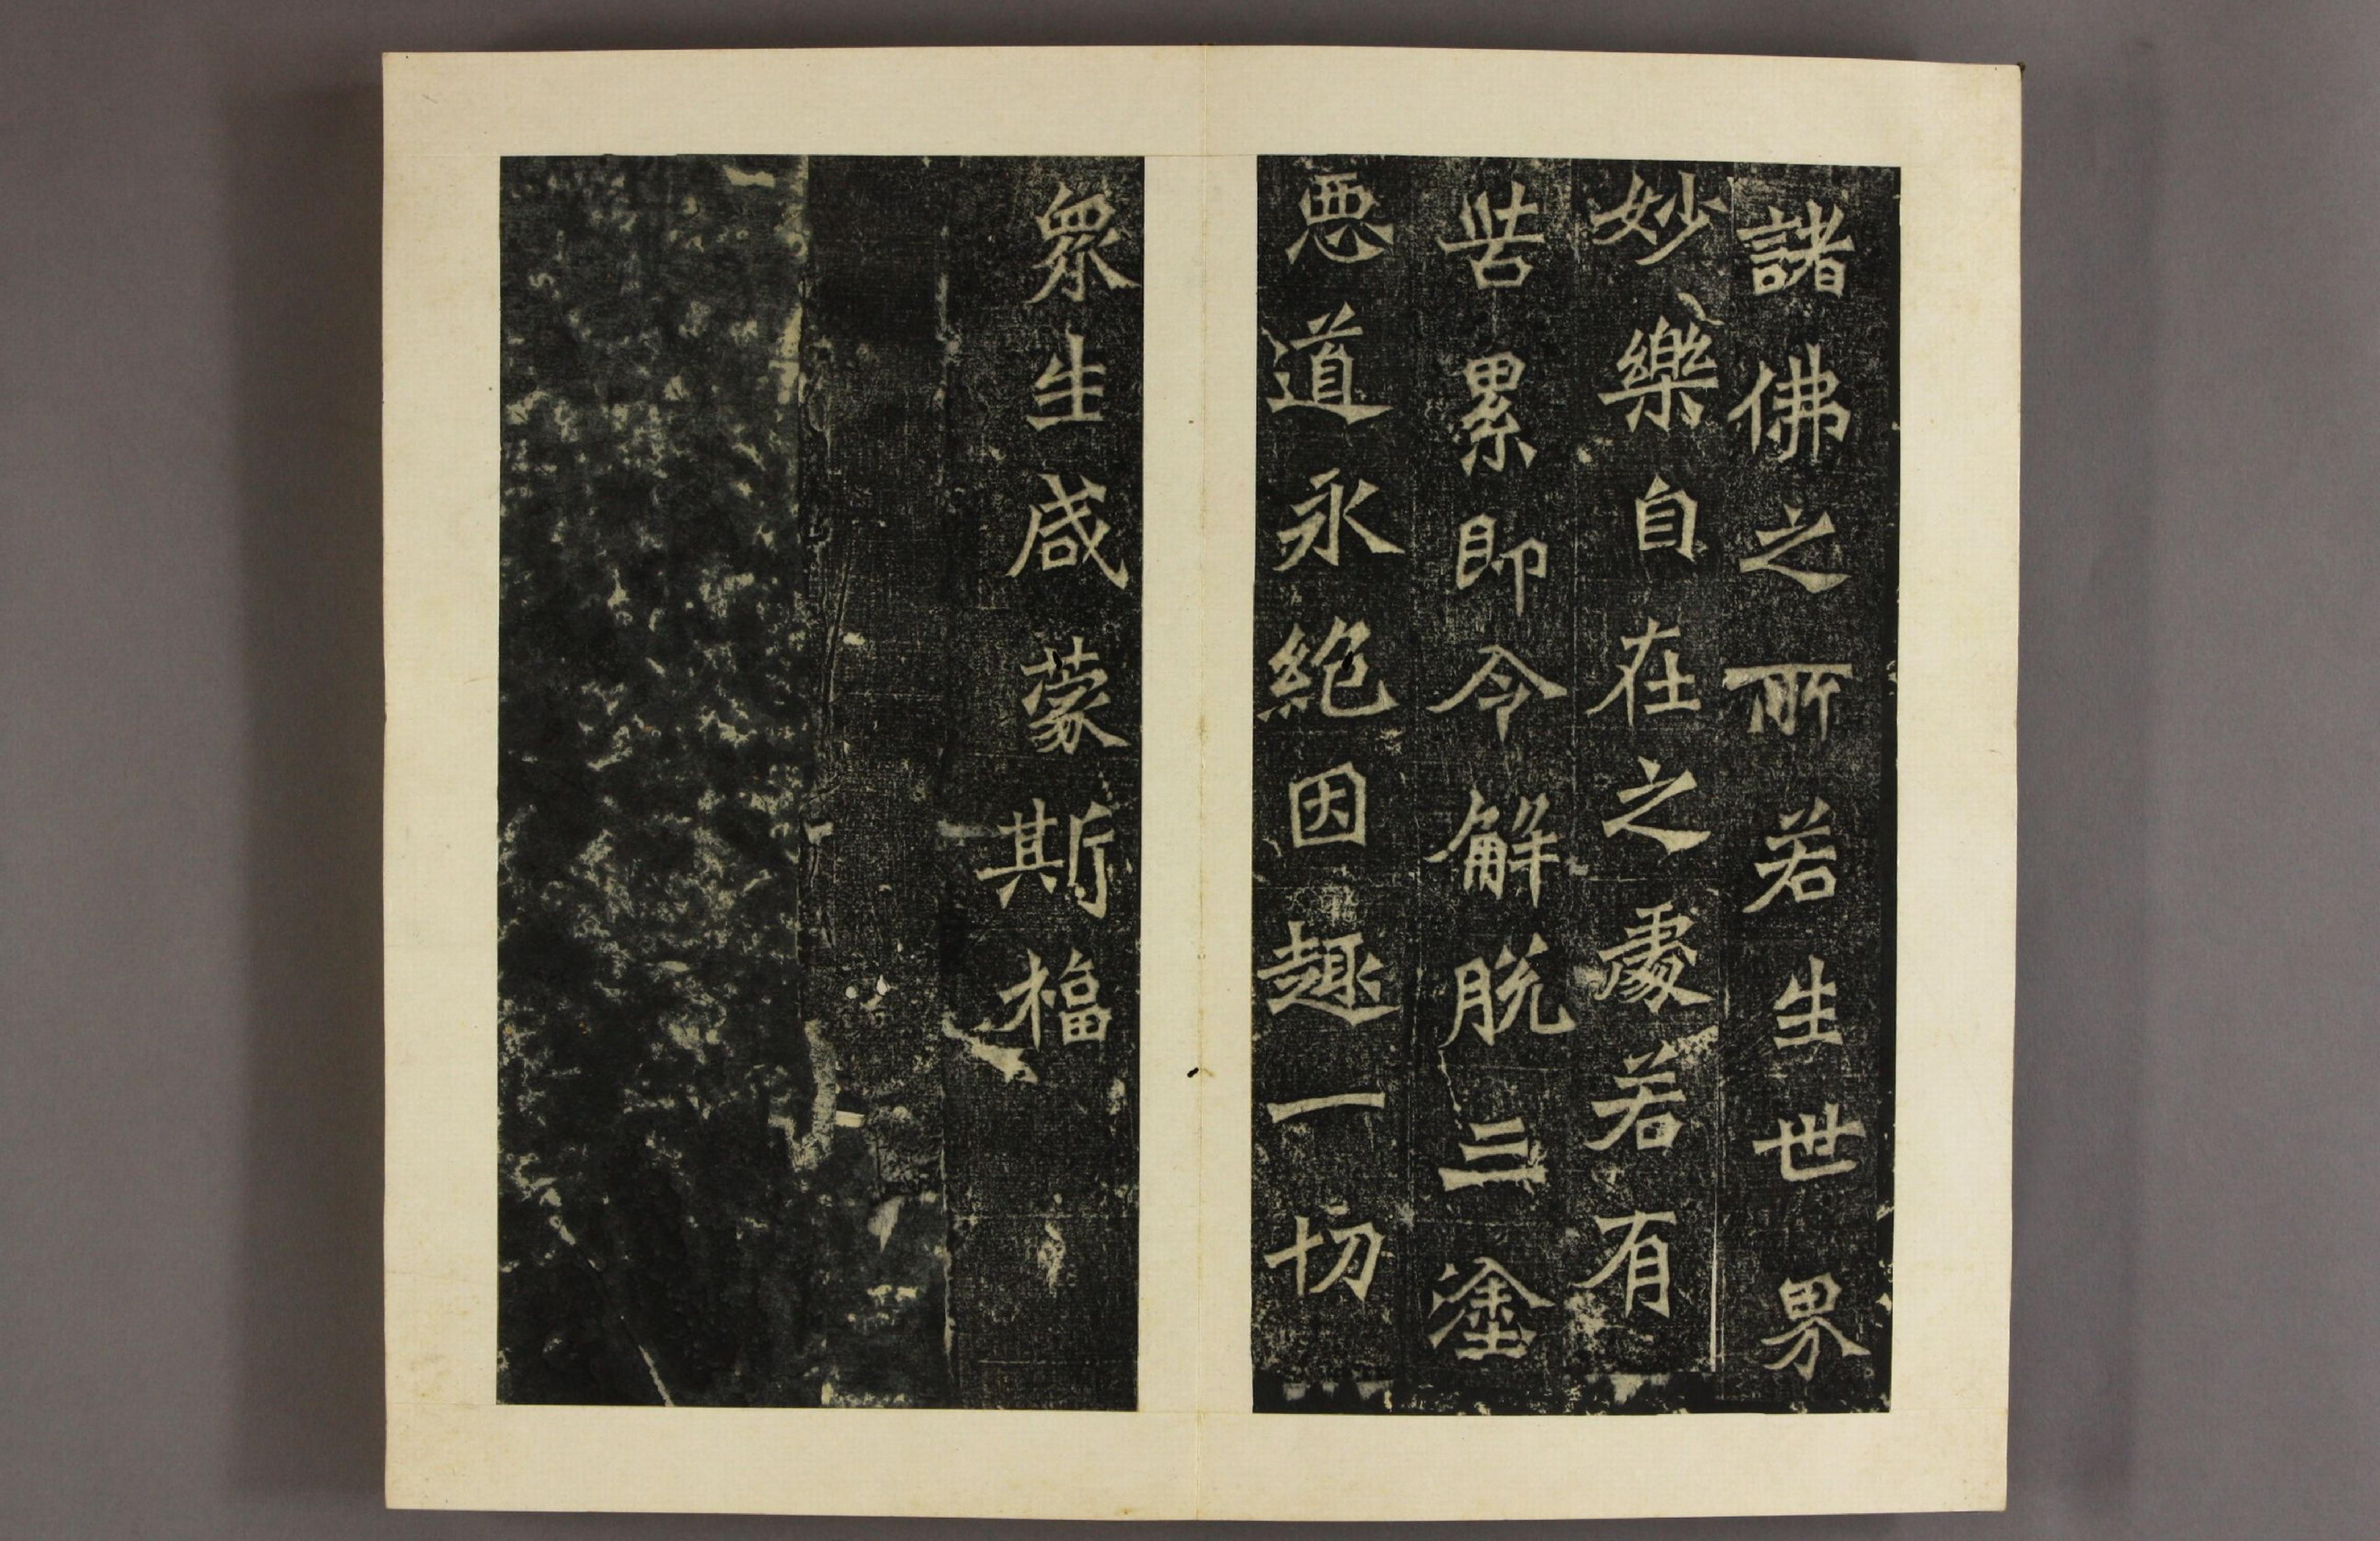 諸佛之所若生世界
妙樂自在之處若有
苦累即令解脱三塗
惡道永絶因趣一切
眾生咸蒙斯福